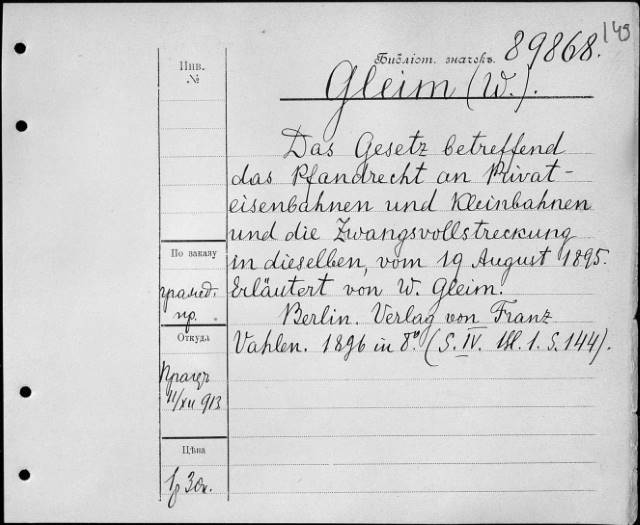 149
Библіот. значекъ. 89868.
Инв.
№
Gleim (W.).
Das Gesetz betreffend
das Pfandrecht an Privat-
eisenbahnen und Kleinbahnen
und die Zwangsvollstreckung
in dieselben, vom 19 August 1895.
Erläutert von W. Gleim.
Berlin. Verlag von Franz
Vahlen. 1896 in 8º. (S. IV. Bl. 1. S. 144).
По заказу
гражд.
пр.
Откуда
11/XII 913
Цѣна